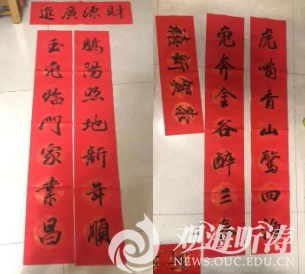 財源廣進
驕陽照地新年順
玉兔臨門家業昌
恭賀新禧
虎嘯青山驚四海
兔奔金谷醉三春
观海听涛
NEWS.OUC.EDU.CN